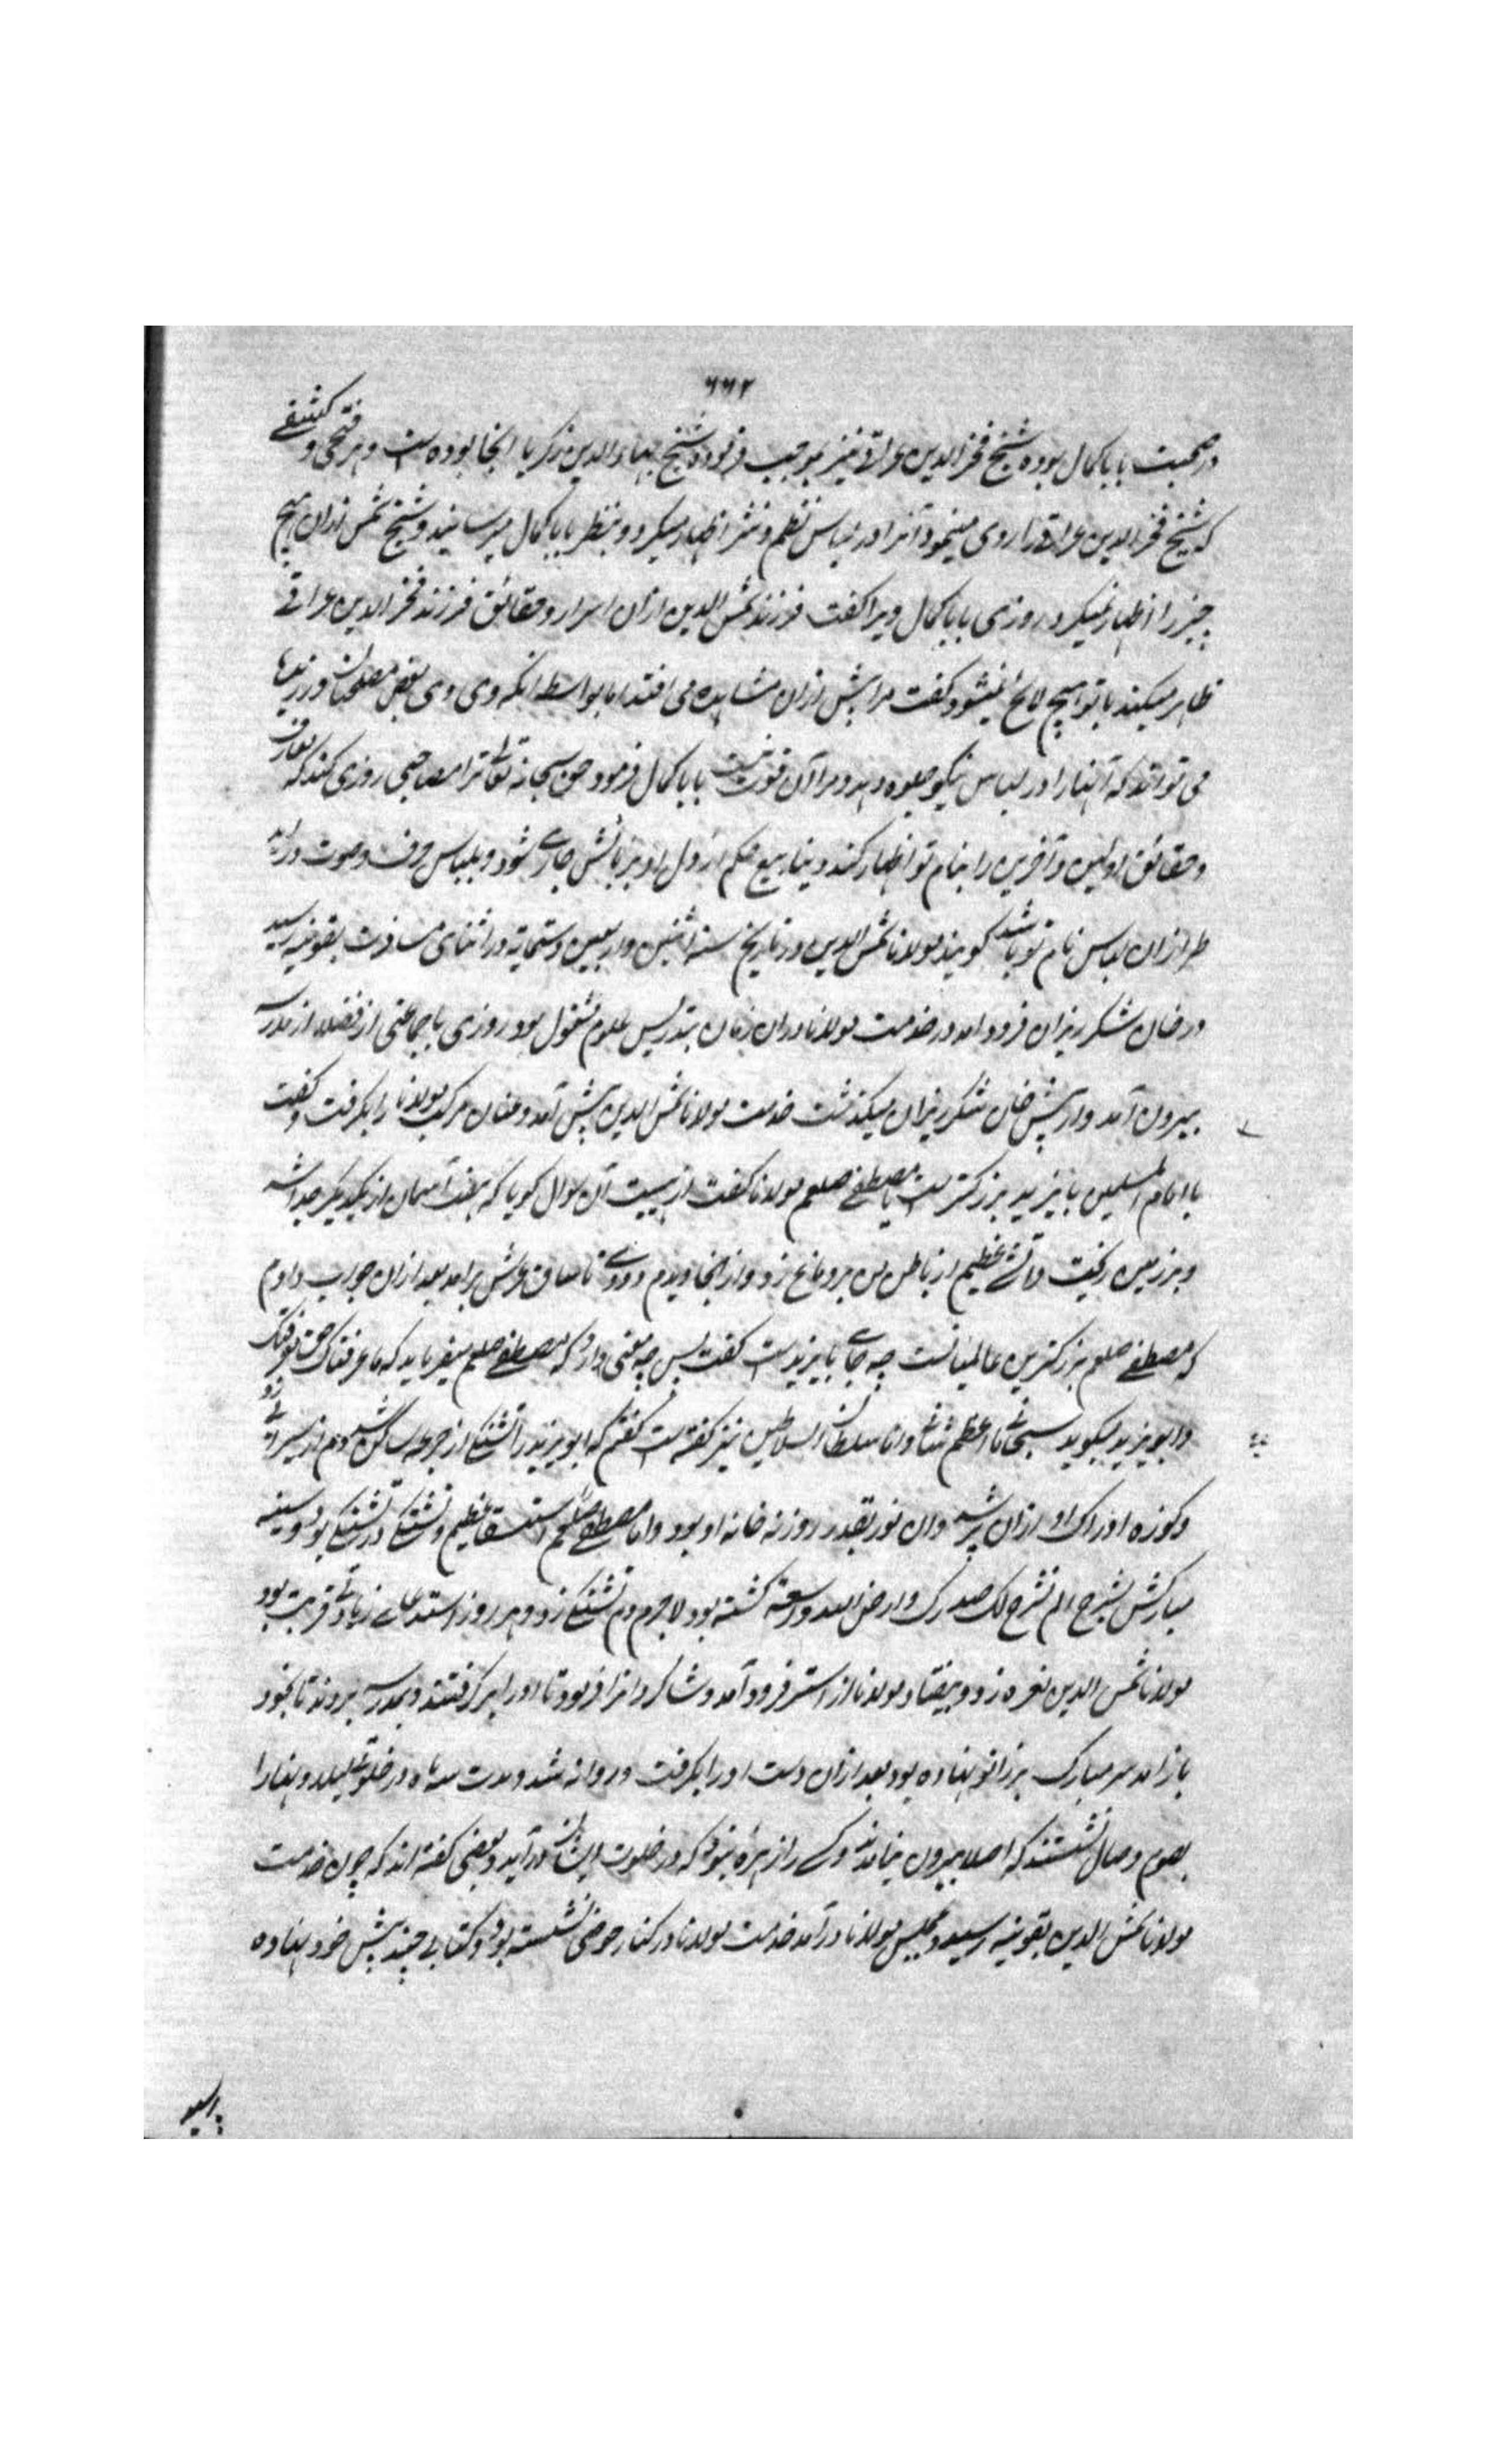 ۶۶۲
در صحبت بابا کمال بوده شیخ فخرالدین عراقی نیز بموجب فرموده شیخ بهاء الدین زکریا آنجا بوده است و هر فتحی و کشفی
که شیخ فخرالدین عراقی را روی مینمود آنرا در لباس نظم و نثر اظهار میکرد و بنظر بابا کمال میرسانید و شیخ شمس از آن هیچ
چیز را اظهار نمیکرد روزی بابا کمال ویرا گفت فرزند شمس الدین ازان اسرار و حقائق که فرزند فخرالدین عراقی
ظاهر میکند بر تو هیچ لائح نمیشود گفت مرا بیش ازان مشاهده می افتد اما بواسطه آنکه وی بعضی مصطلحات ورزیده
می تواند که آنها را در لباس نیکو جلوه دهد و مرا آن قوت نیست بابا کمال فرمود حق سبحانه تعالی ترا مصاحبی روزی کند که معارف
و حقائق اولین و آخرین را بنام تو اظهار کند و ینابیع حکم از دل او بر زبانش جاری شود و بلباس حرف و صوت درآید
طراز آن لباس نام تو باشد گویند مولانا شمس الدین در تاریخ سنه اثنین و اربعین و ستمایة در اثنای مسافرت بقونیه رسید
در خان شکر ریزان فرود آمد و خدمت مولانا دران زمان بتدریس علوم مشغول بود روزی با جماعتی از فضلا از مدرسه
بیرون آمد و از پیش خان شکر ریزان میگذشت خدمت مولانا شمس الدین پیش آمد و عنان مرکب مولانا را بگرفت و گفت
یا امام المسلمین بایزید بزرگتر است یا مصطفی صلعم مولانا گفت از هیبت آن سوال گویا که هفت آسمان از یکدیگر جدا شد
و بر زمین ریخت و آتشی عظیم از باطن من بر دماغ زد و از آنجا دیدم دودی تا ساق عرش برآمد بعد ازان جواب دادم
که مصطفی صلعم بزرگترین عالمیانست چه جای بایزیدست گفت پس چه معنی دارد که مصطفی صلعم میفرماید که ما عرفناک حق معرفتک
و ابویزید میگوید سبحانی ما اعظم شانی و انا سلطان السلاطین نیز گفته است گفتم که ابویزید را تشنگی از جرعه ساکن شد و دم از سیرابی زد
و کوزه ادراک او ازان پر شد و ان نور بقدر روزنه خانه او بود و اما مصطفی صلعم استسقا عظیم و تشنگی در تشنگی بود و سینه
مبارکش بشرح الم نشرح لک صدرک و ارض الله واسعة گشته بود لاجرم دم تشنگی زد و هر روز استدعای زیادتی قربت بود
مولانا شمس الدین نعره زد و بیفتاد مولانا از استر فرود آمد و شاگردانرا فرمود تا او را برگرفتند و بمدرسه بردند تا بخود
باز آمد سر مبارک بر زانو نهاده بود بعد ازان دست او را بگرفت و روانه شد و مدت سه ماه در خلوتی لیلا و نهارا
بصوم وصال نشستند که اصلا بیرون نیامدند و کسی را زهره نبود که در خلوت ایشان درآید و بعضی گفته اند که چون خدمت
مولانا شمس الدین بقونیه رسید و بمجلس مولانا درآمد خدمت مولانا در کنار حوضی نشسته بود و کتابی چند پیش خود نهاده
پرسید